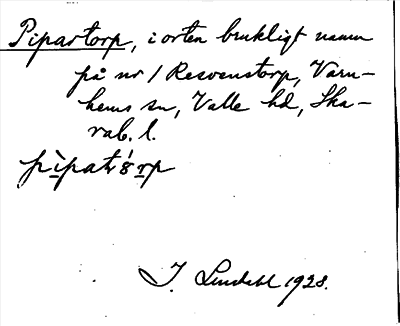 Pipartorp, i orten brukligt namn
på nr 1 Resvenstorp, Varn-
hems sn, Valle hd, Ska-
rab. l.
pìpatórp
J. Lindahl 1928.